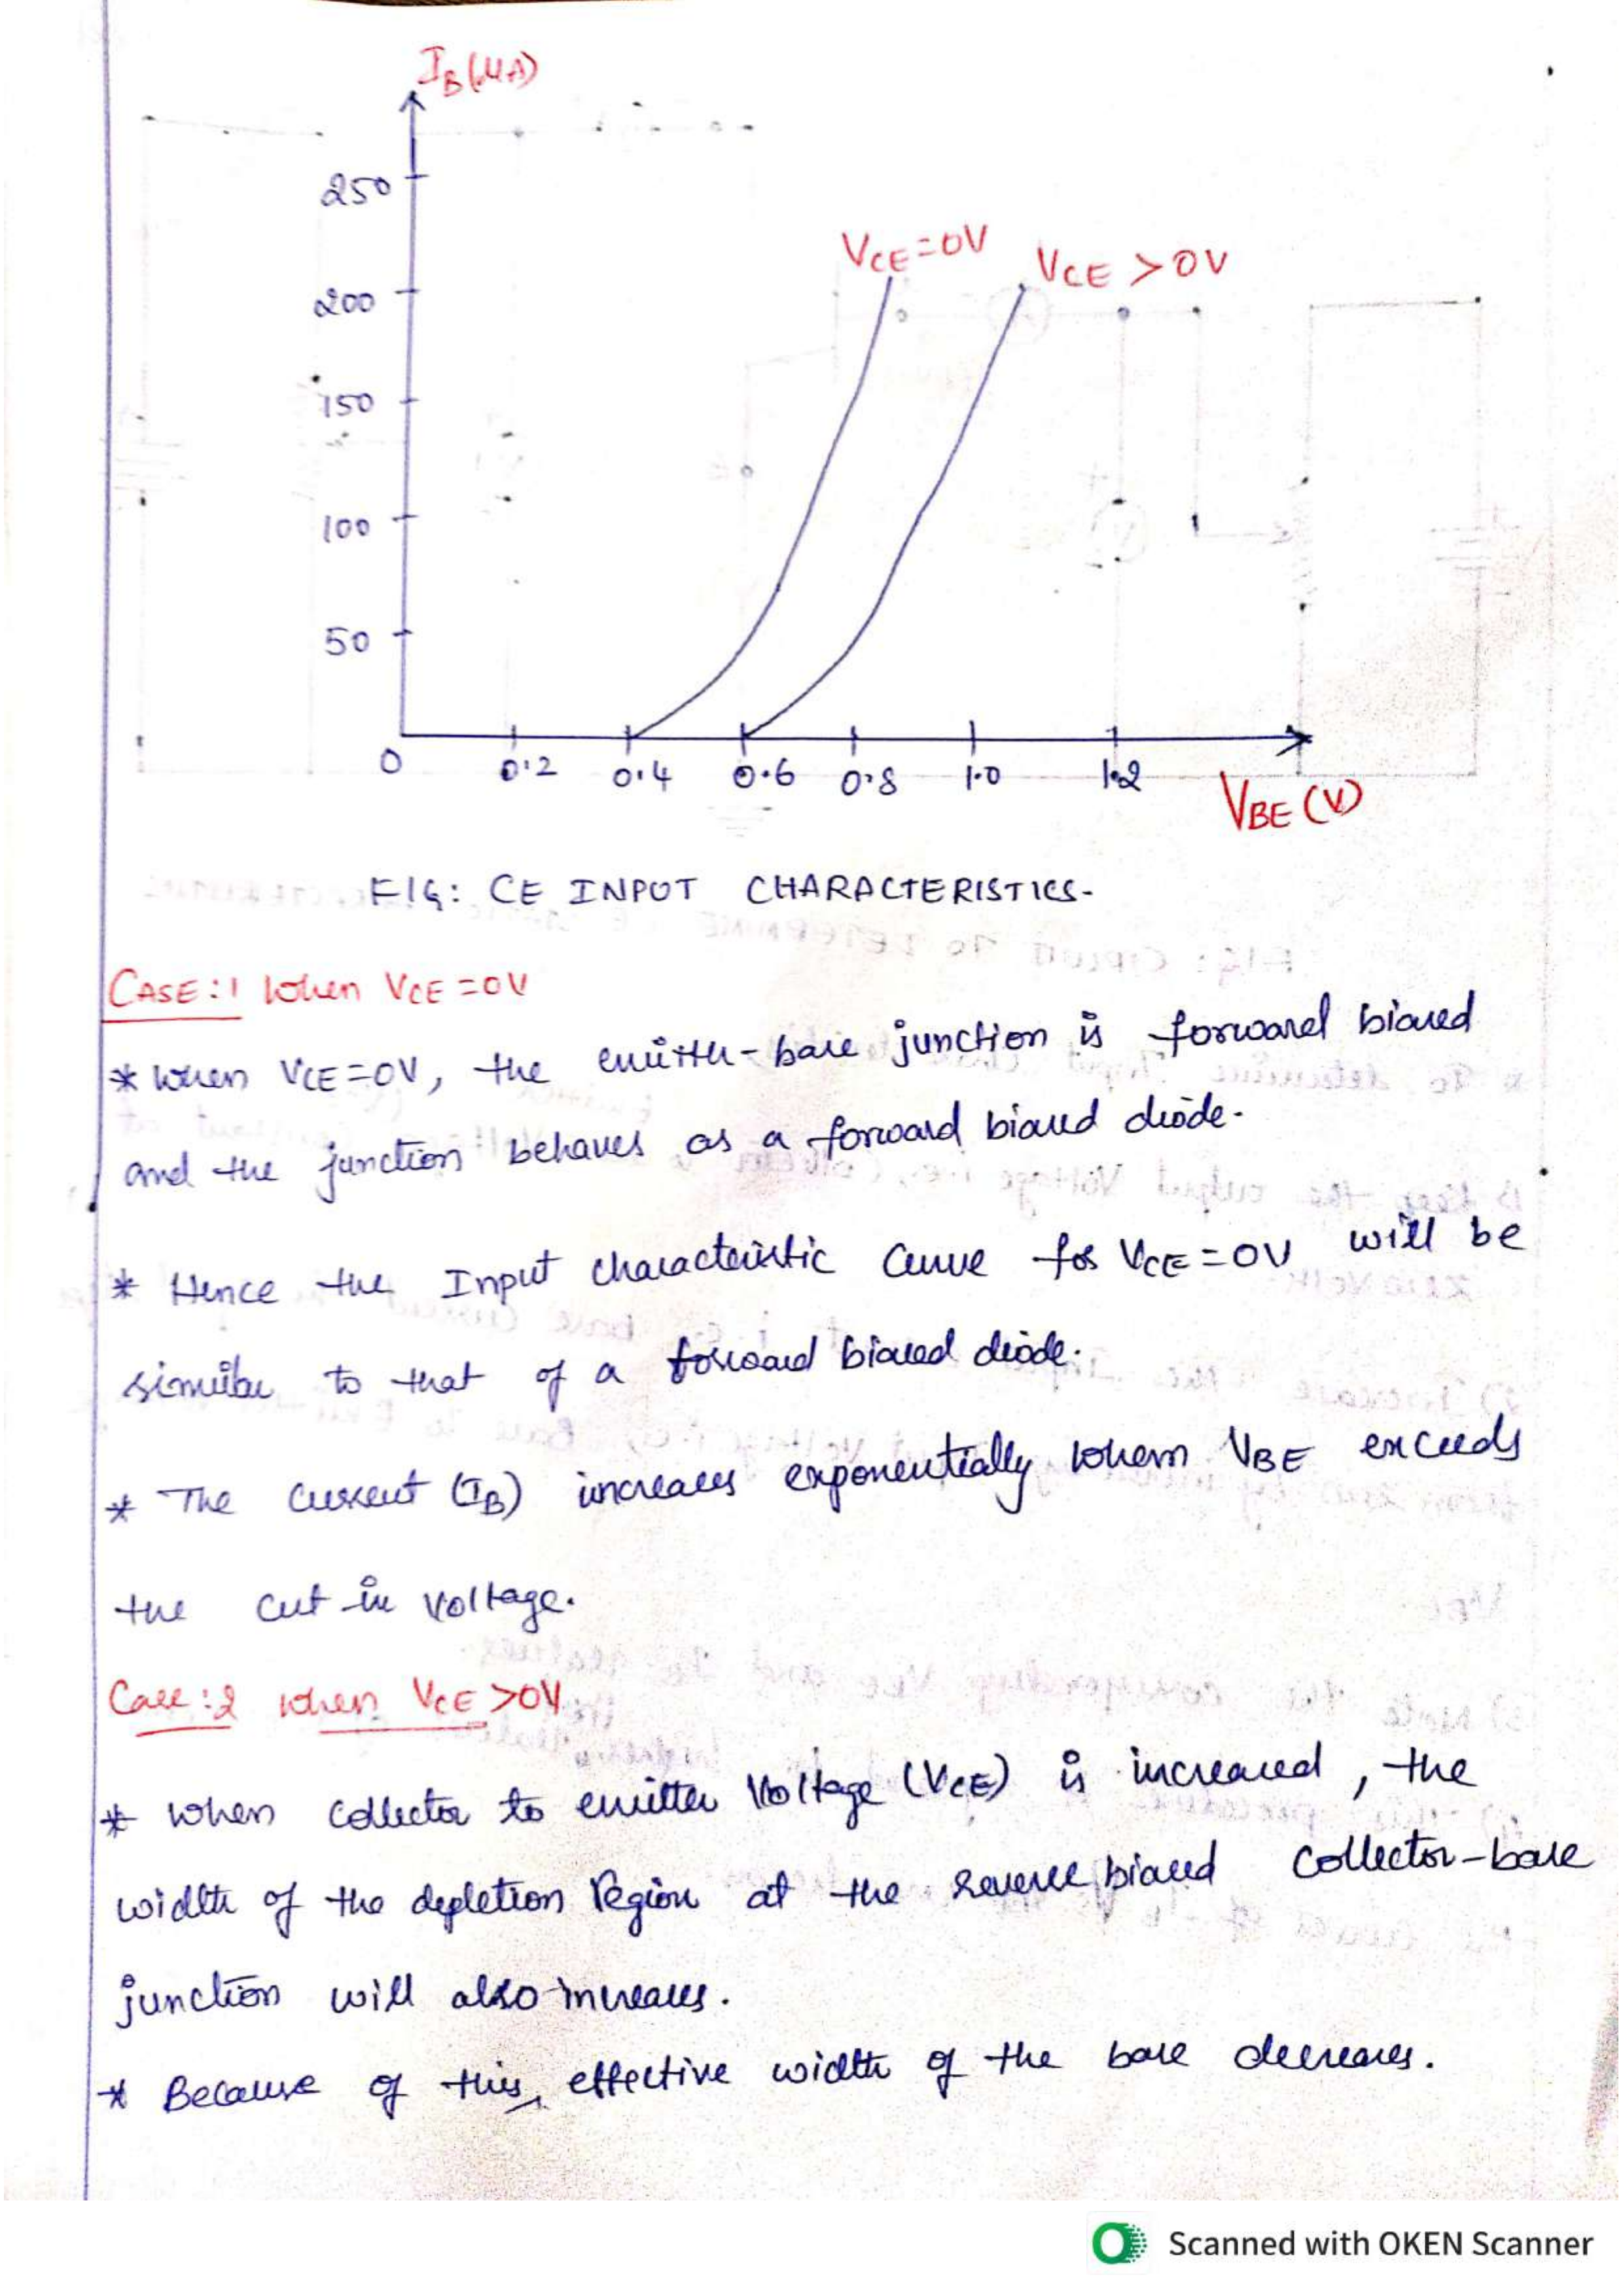 IB(μA)
250
VCE=0V VCE >0V
200
150
100
50
0 0.2 0.4 0.6 0.8 1.0 1.2
VBE (V)
FIG: CE INPUT CHARACTERISTICS-
CASE:1 When VCE=0V
* When VCE=0V, the emitter-base junction is forward biased
and the junction behaves as a forward biased diode.
* Hence the Input characteristic Curve for VCE=0V will be
similar to that of a forward biased diode.
* The Current (IB) increases exponentially when VBE exceeds
the cut in voltage.
Case:2 when VCE >0V
* when collector to emitter Voltage (VCE) is increased, the
width of the depletion region at the reverse biased collector-base
junction will also increases.
* Because of this, effective width of the base decreases.
Scanned with OKEN Scanner